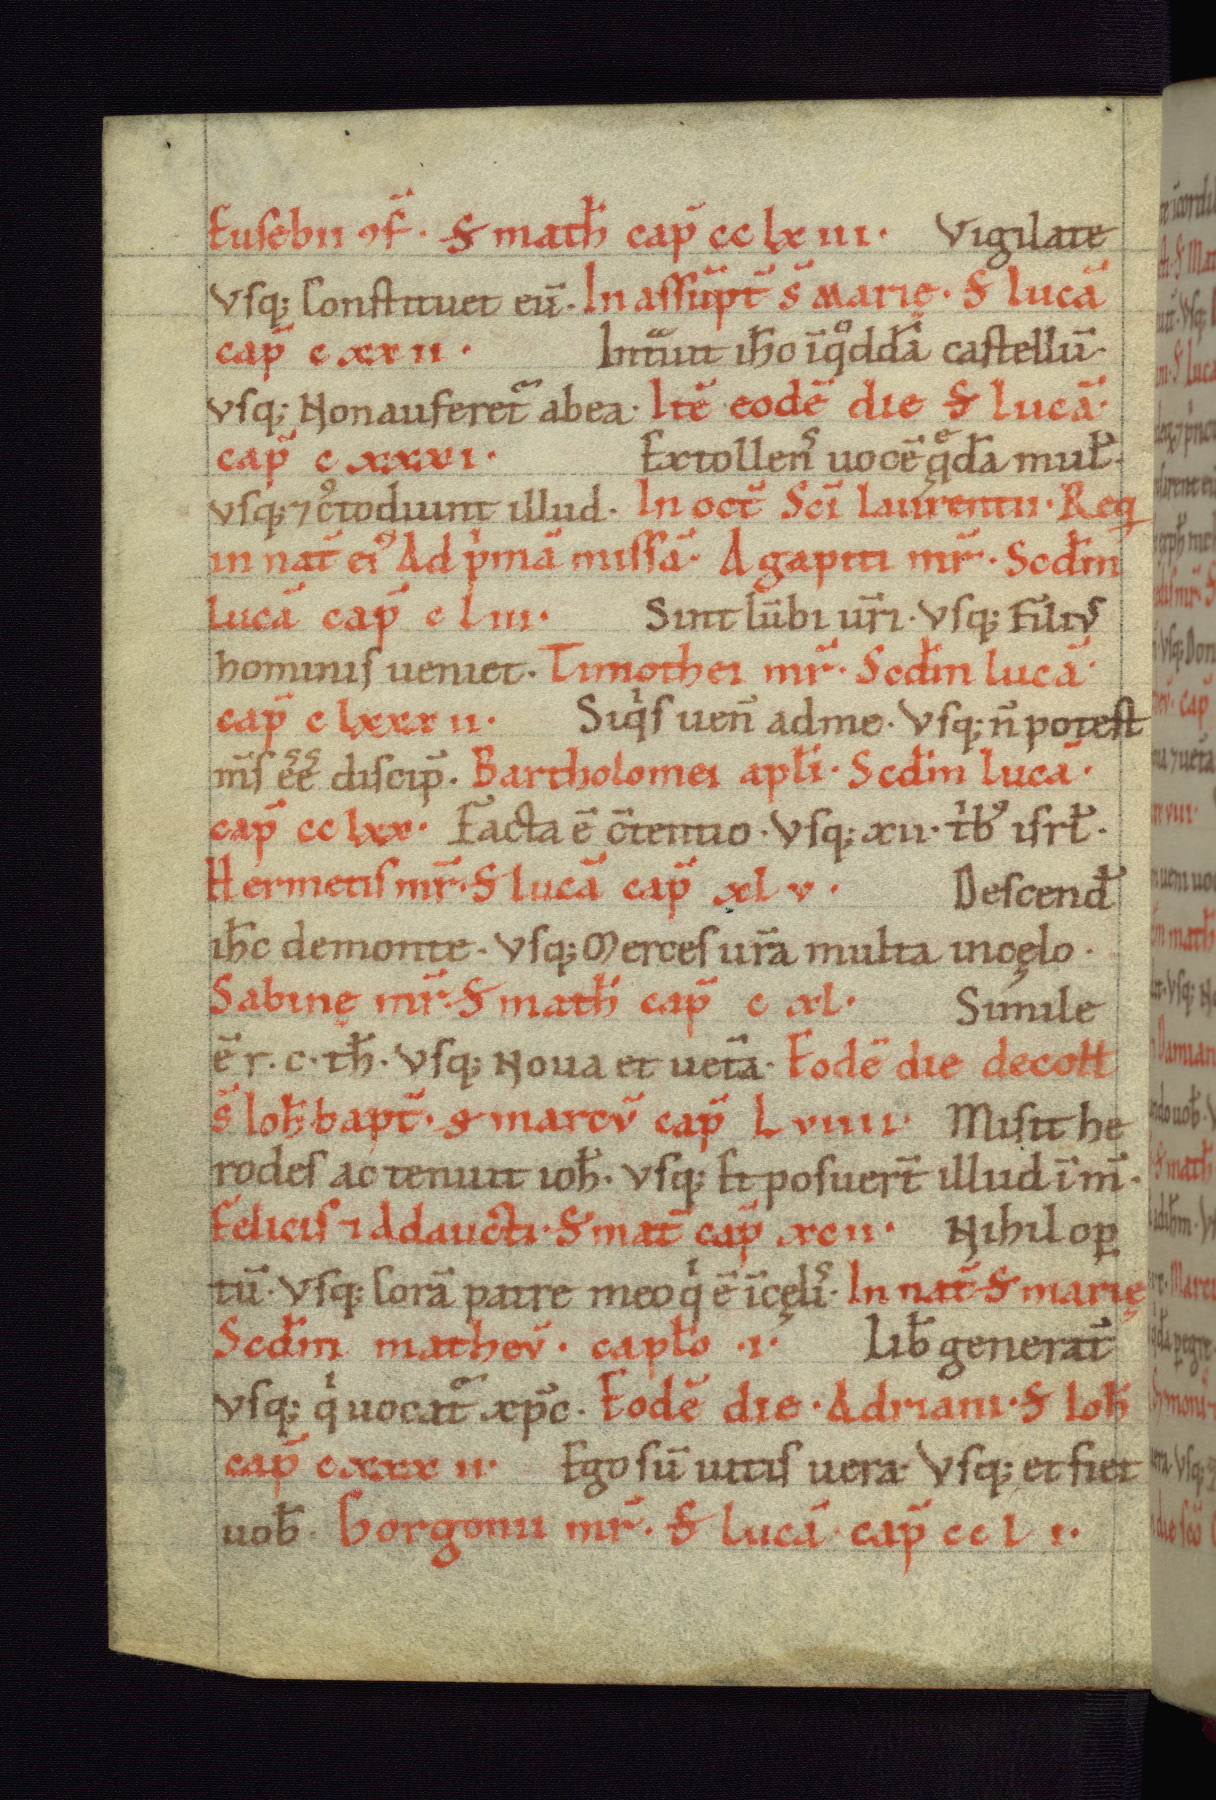 Eusebii ꝯf̄. S̄ math̄ cap̄ cc lx iii. Vigilate
Vsq; Constituet eū. In assūpt̄ s̄ Marię. S̄ lucā
cap̄ c xx ii. Intᷓuit ih̄o īqͦddā castellū.
vsq; Non auferet᷑ ab ea. Itē eodē die S̄ lucā.
cap̄ c xxxi. Extollenˢ uocē qͤdā mul̄.
vsq; ⁊ c̄todiunt illud. In oct̄ Sc̄i laurentii. Req̄
in nat̄ ei⁹ Ad p'mā missā. Agapiti mr̄. Scdm̄
lucā cap̄ c L iii. Sint lūbi ur̄i. Vsq; Filiꝰ
hominis ueniet. Timothei mr̄. Scdm̄ lucā.
cap̄ c lxxx ii. Siq's uen̄ ad me. Vsq; n̄ potest
m̄s ēē discip̄. Bartholomei apl̄i. Scdm̄ lucā.
cap̄ cc lxx. Facta ē c̄tentio. Vsq; xii. t'b⁹ isrl̄.
Hermetis mr̄. S̄ lucā cap̄ xl v. Descend̄
ih̄c de monte. Vsq; Merces ur̄a multa in cęlo.
Sabinę mr̄. S̄ math̄ cap̄ c xl. Simile
ē r. c. th̄. Vsq; Noua et uet̄a. Eodē die decoll̄
s̄ Ioh̄ bapt̄. S̄ marcū cap̄ L viiii. Misit he
rodes ac tenuit ioh̄. Vsq; Et posuer̄t illud ī m̄.
Felicis ⁊ Addaucti. S̄ mat̄ cap̄ xc ii. Nihil oꝑ
tū. Vsq; Corā patre meo q' ē ī cęlis. In nat̄ S̄ marię
Scdm̄ matheū. capl̄o .i. Lib̄ generat̄
vsq; q' uocat᷑ xp̄c. Eodē die. Adriani. S̄ Ioh̄
cap̄ cxxx ii. Ego sū uitis uera. Vsq; et fiet
uob̄. Gorgonii mr̄. S̄ lucā cap̄ cc l i.